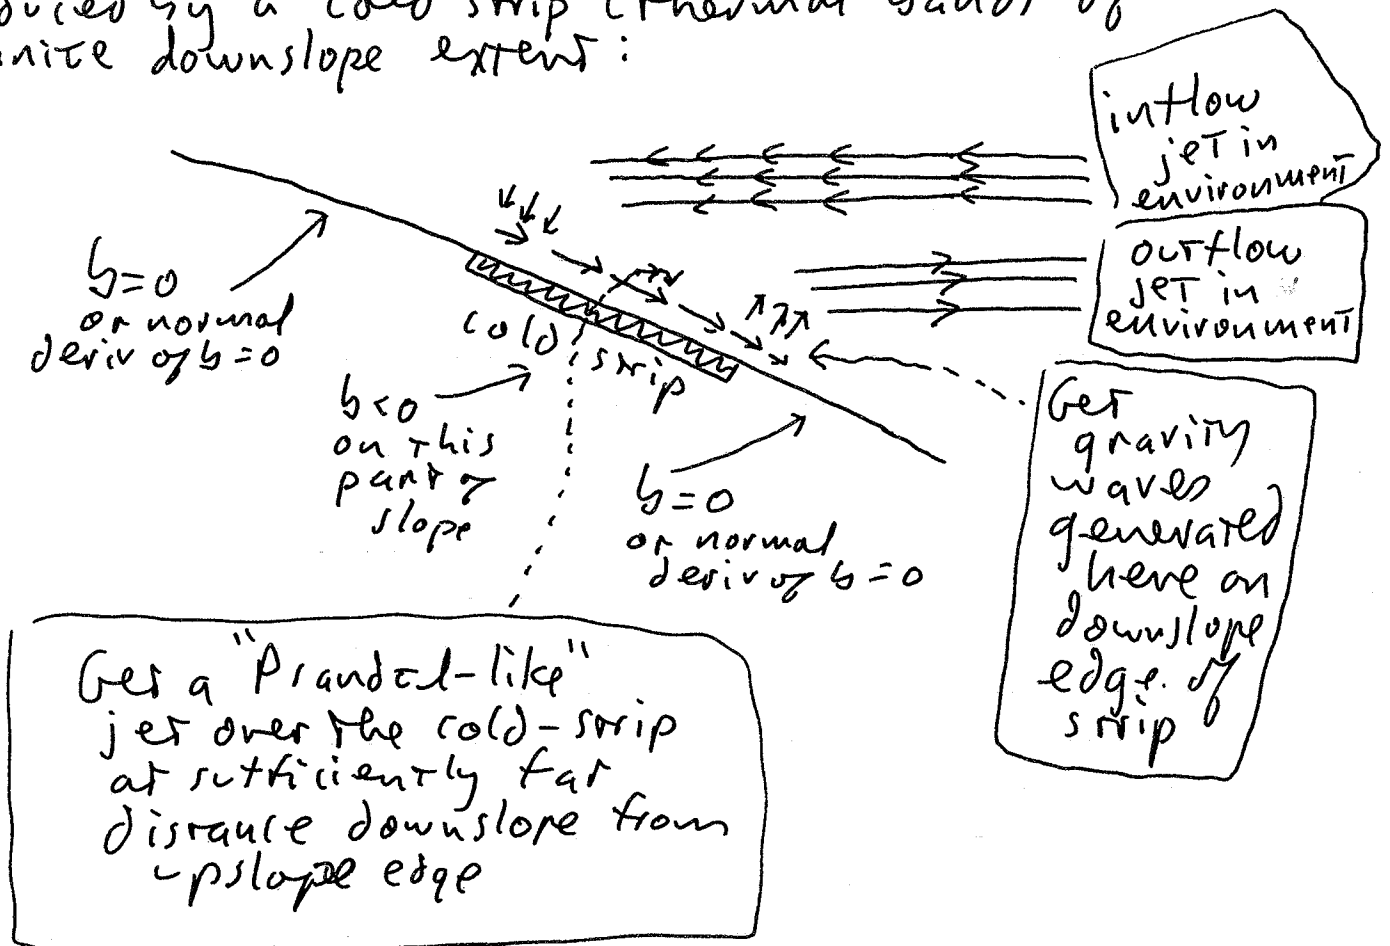 by a cold strip (thermal band) of
downslope extent:
inflow
jet in
environment
outflow
jet in
environment
b=0
or normal
deriv of b=0
cold strip
b<0
on this
part of
slope
b=0
or normal
deriv of b=0
Get
gravity
waves
generated
here on
downslope
edge of
strip
Get a "Prandtl-like"
jet over the cold-strip
at sufficiently far
distance downslope from
upslope edge